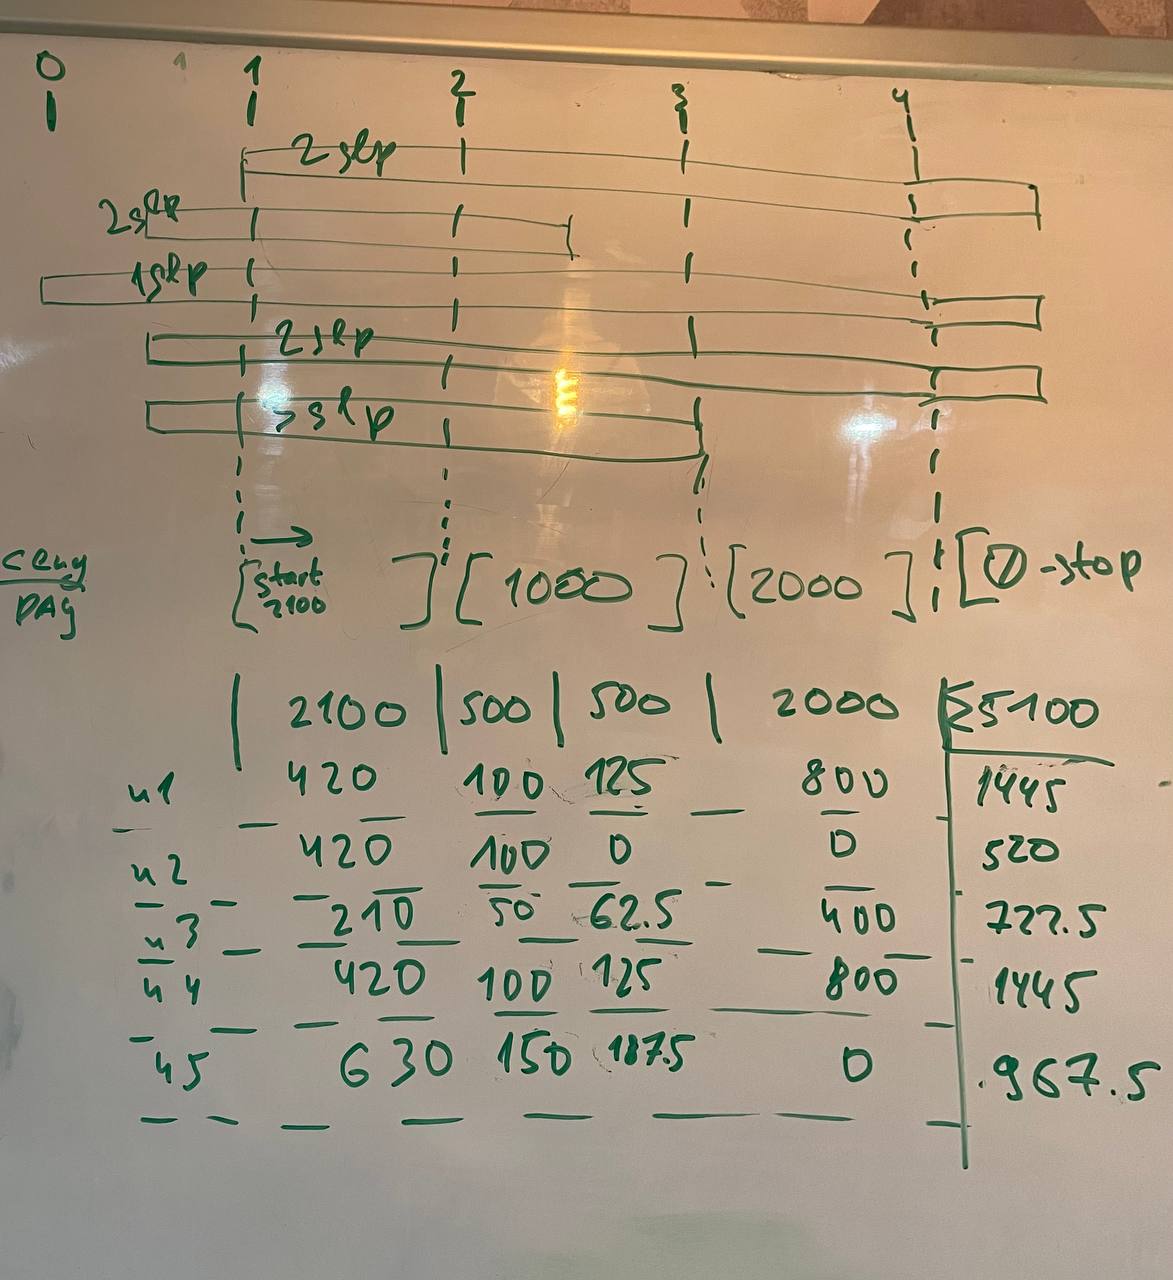 0 1 1 2 3 4
2 slp
2slp
1slp
2slp
slp
[start ] [1000] [2000] [0 -stop
2100
DAY
2100 | 500 | 500 | 2000 | Σ5100
u1 420 100 125 800 1445
u2 420 100 0 0 520
u3 210 50 62.5 400 722.5
u4 420 100 125 800 1445
u5 630 150 187.5 0 967.5